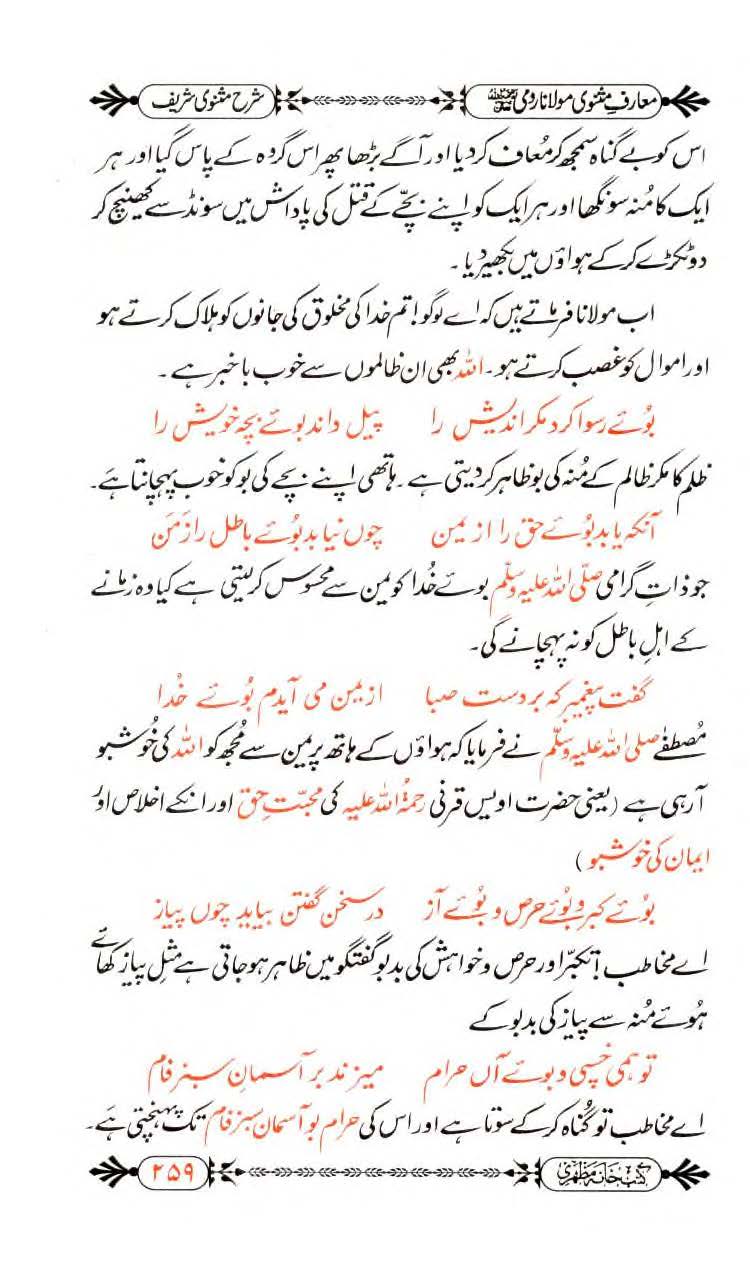 معارفِ مثنوی مولانا رومی رحمۃ اللہ علیہ شرح مثنوی شریف
اس کو بے گناہ سمجھ کر مُعاف کر دیا اور آگے بڑھا پھر اس گروہ کے پاس گیا اور ہر
ایک کا مُنہ سونگھا اور ہر ایک کو اپنے بچّے کے قتل کی پاداش میں سونڈ سے کھینچ کر
دو ٹکڑے کر کے ہواؤں میں بکھیر دیا ۔
اب مولانا فرماتے ہیں کہ اے لوگو! تم خدا کی مخلوق کی جانوں کو ہلاک کرتے ہو
اور اموال کو غصب کرتے ہو ۔ اللہ بھی ان ظالموں سے خوب باخبر ہے ۔
بُوئے رسوا کرد مکر اندیش را پیل داند بوئے بچہ خویش را
ظلم کا مکر ظالم کے مُنہ کی بو ظاہر کر دیتی ہے ۔ ہاتھی اپنے بچے کی بو کو خوب پہچانتا ہے۔
آنکہ یابد بُوئے حق را از یمن چوں نیابد بُوئے باطل را زَمَن
جو ذاتِ گرامی صلّی اللہ علیہ وسلّم بوئے خُدا کو یمن سے محسوس کر لیتی ہے کیا وہ زمانے
کے اہلِ باطل کو نہ پہچانے گی۔
گفت پیغمبر کہ بر دست صبا از یمن می آیدم بُوئے خُدا
مُصطفےٰ صلی اللہ علیہ وسلّم نے فرمایا کہ ہواؤں کے ہاتھ پر یمن سے مُجھ کو اللہ کی خُوشبو
آ رہی ہے (یعنی حضرت اویس قرنی رحمۃُ اللہ علیہ کی محبّتِ حق اور انکے اخلاص اور
ایمان کی خُوشبو )
بُوئے کبر و بُوئے حرص و بُوئے آز در سخن گفتن بیاید چوں پیاز
اے مخاطب! تکبّر اور حرص و خواہش کی بدبو گفتگو میں ظاہر ہو جاتی ہے مثلِ پیاز کھائے
ہُوئے مُنہ سے پیاز کی بدبو کے
تو ہمی خسپی و بوئے آں حرام میزند بر آسمانِ سبز فام
اے مخاطب تو گُناہ کر کے سوتا ہے اور اس کی حرام بو آسمان سبز فام تک پہنچتی ہے۔
کتب خانہ مظہری ۲۵۹